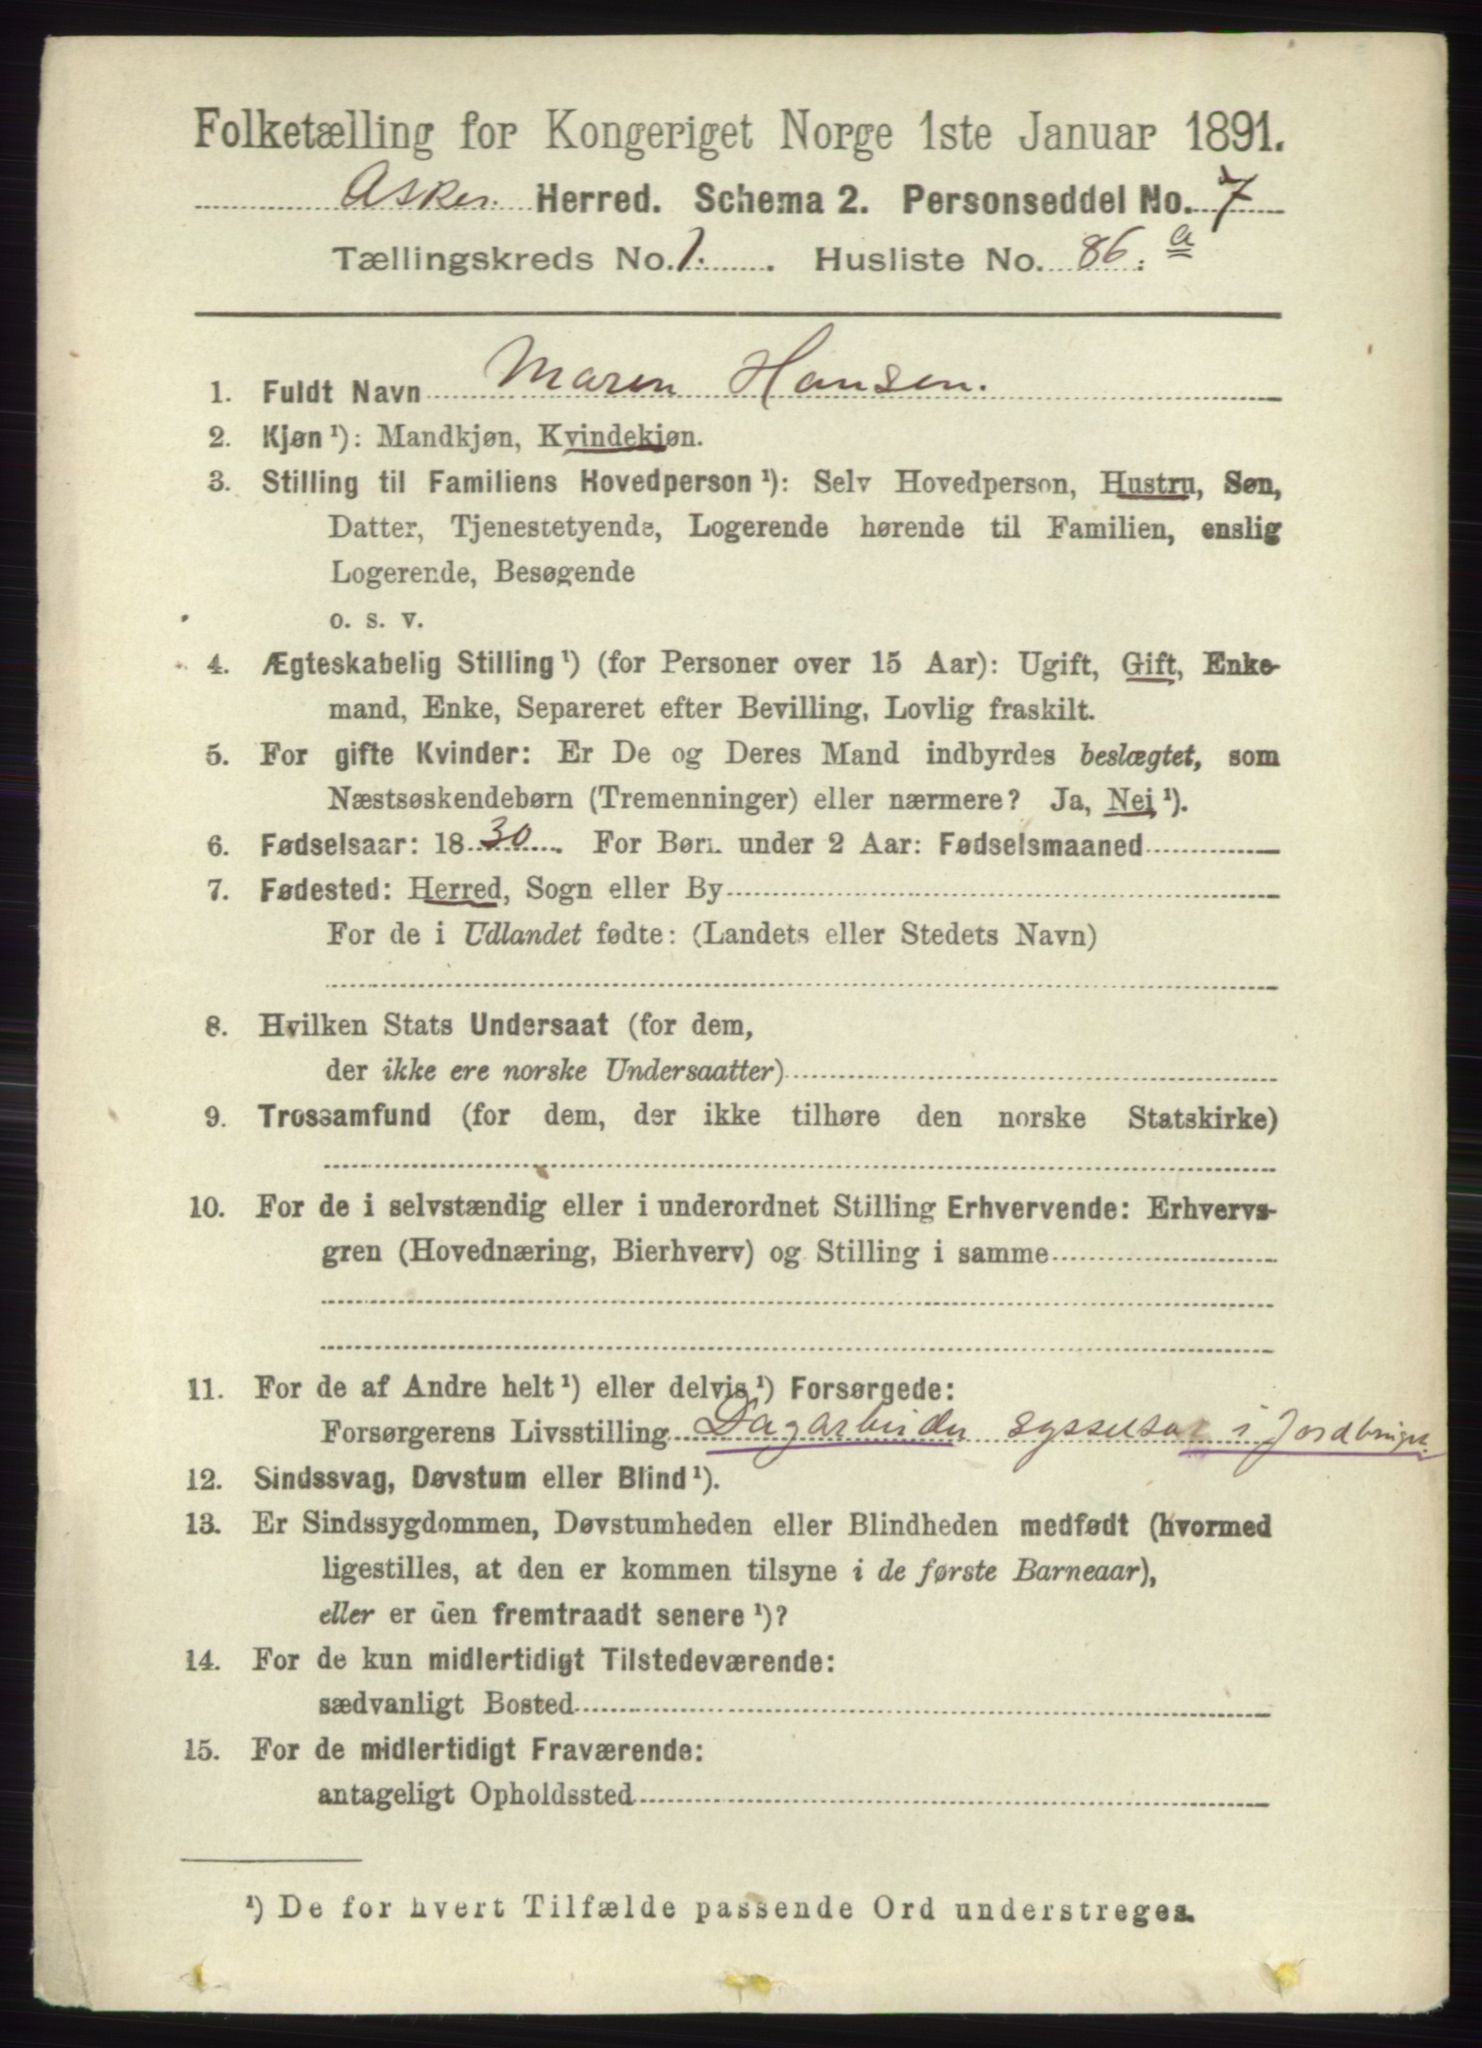 Folketælling for Kongeriget Norge 1ste Januar 1891.
Asker. Herred. Schema 2. Personseddel No. 7
Tællingskreds No. 1. Husliste No. 86. a
1. Fuldt Navn Maren Hansen.
2. Kjøn ¹): Mandkjøn, Kvindekjøn.
3. Stilling til Familiens Hovedperson ¹): Selv Hovedperson, Hustru, Søn,
Datter, Tjenestetyende, Logerende hørende til Familien, enslig
Logerende, Besøgende
o. s. v.
4. Ægteskabelig Stilling ¹) (for Personer over 15 Aar): Ugift, Gift, Enke-
mand, Enke, Separeret efter Bevilling, Lovlig fraskilt.
5. For gifte Kvinder: Er De og Deres Mand indbyrdes beslægtet, som
Næstsøskendebørn (Tremenninger) eller nærmere? Ja, Nei ¹).
6. Fødselsaar: 1830. For Børn under 2 Aar: Fødselsmaaned
7. Fødested: Herred, Sogn eller By
For de i Udlandet fødte: (Landets eller Stedets Navn)
8. Hvilken Stats Undersaat (for dem,
der ikke ere norske Undersaatter)
9. Trossamfund (for dem, der ikke tilhøre den norske Statskirke)
10. For de i selvstændig eller i underordnet Stilling Erhvervende: Erhvervs-
gren (Hovednæring, Bierhverv) og Stilling i samme
11. For de af Andre helt ¹) eller delvis ¹) Forsørgede:
Forsørgerens Livsstilling Dagarbeider sysselsat i Jordbruget.
12. Sindssvag, Døvstum eller Blind ¹).
13. Er Sindssygdommen, Døvstumheden eller Blindheden medfødt (hvormed
ligestilles, at den er kommen tilsyne i de første Barneaar),
eller er den fremtraadt senere ¹)?
14. For de kun midlertidigt Tilstedeværende:
sædvanligt Bosted
15. For de midlertidigt Fraværende:
antageligt Opholdssted
¹) De for hvert Tilfælde passende Ord understreges.